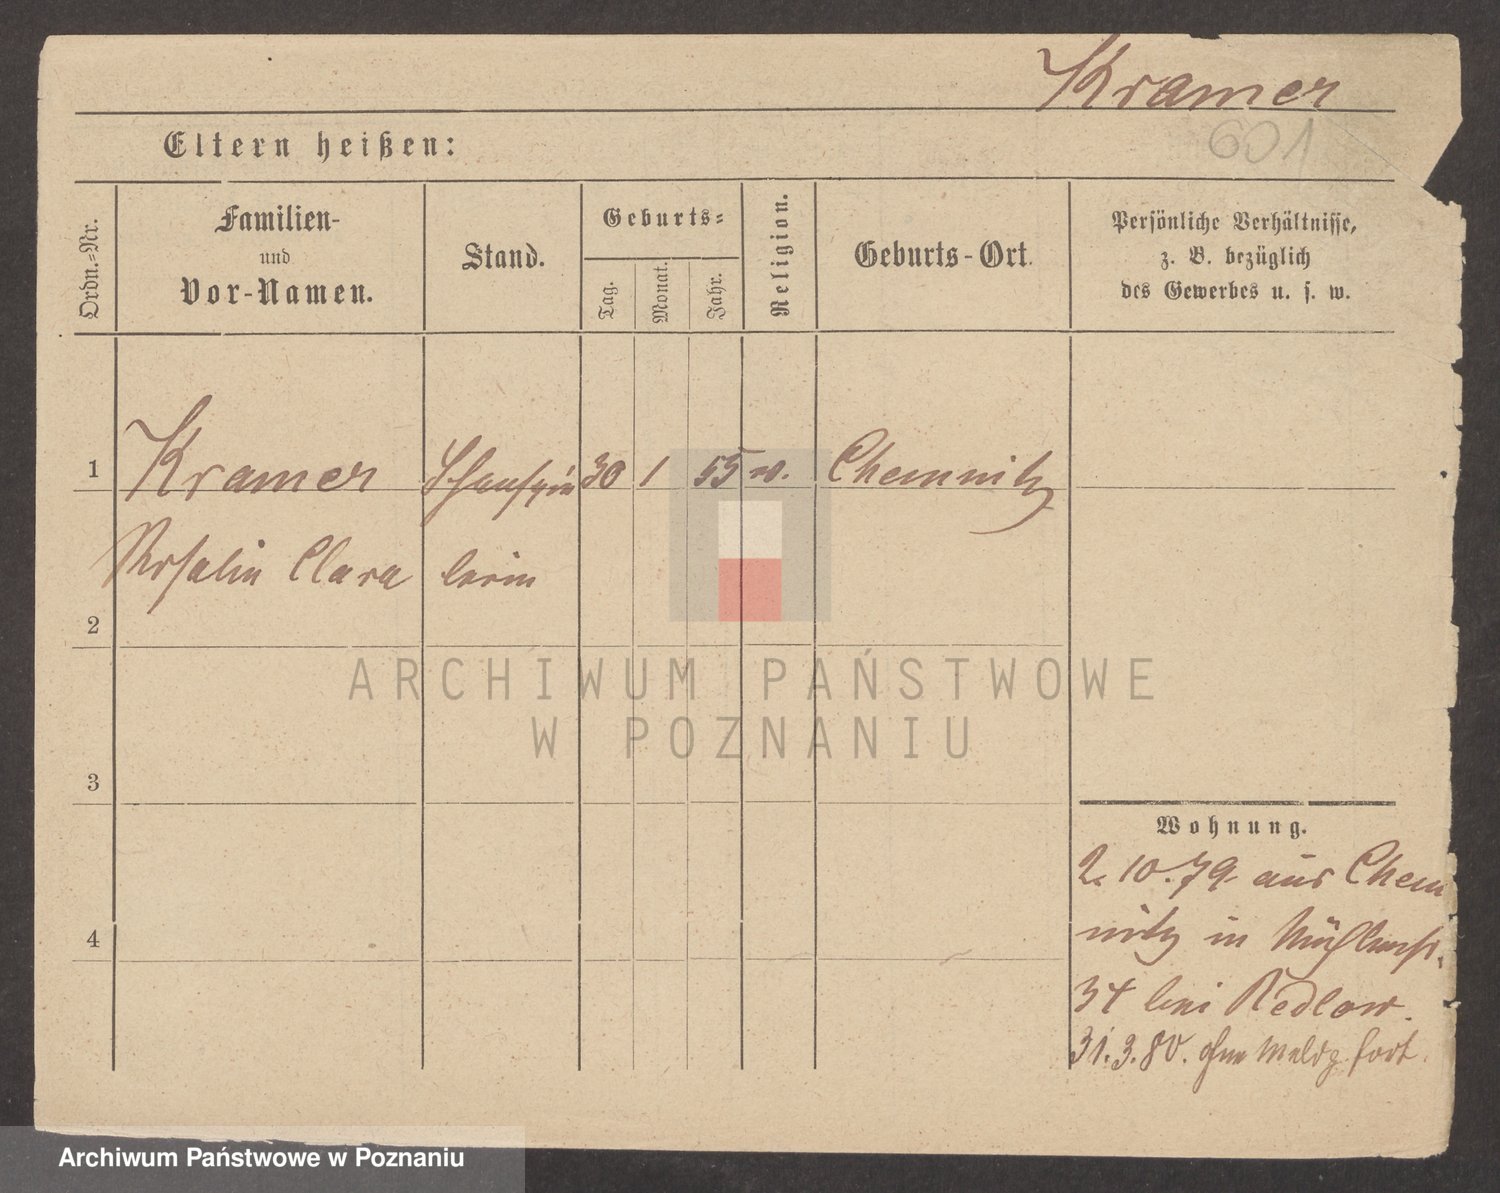 Kramer
601
Eltern heißen:
Ordn.-Nr.
Familien-
und
Vor-Namen.
Stand.
Geburts-
Tag.
Monat.
Jahr.
Religion.
Geburts-Ort.
Persönliche Verhältnisse,
z. B. bezüglich
des Gewerbes u. s. w.
1
Kramer Schauspie 30 1 55 Chemnitz
Rosalie Clara lerin
2
ARCHIWUM PAŃSTWOWE
W POZNANIU
3
Wohnung.
2. 10. 79. aus Chem
4
nitz in Mühlenstr.
34 bei Redlow.
31. 3. 80. ohne Meldg fort.
Archiwum Państwowe w Poznaniu